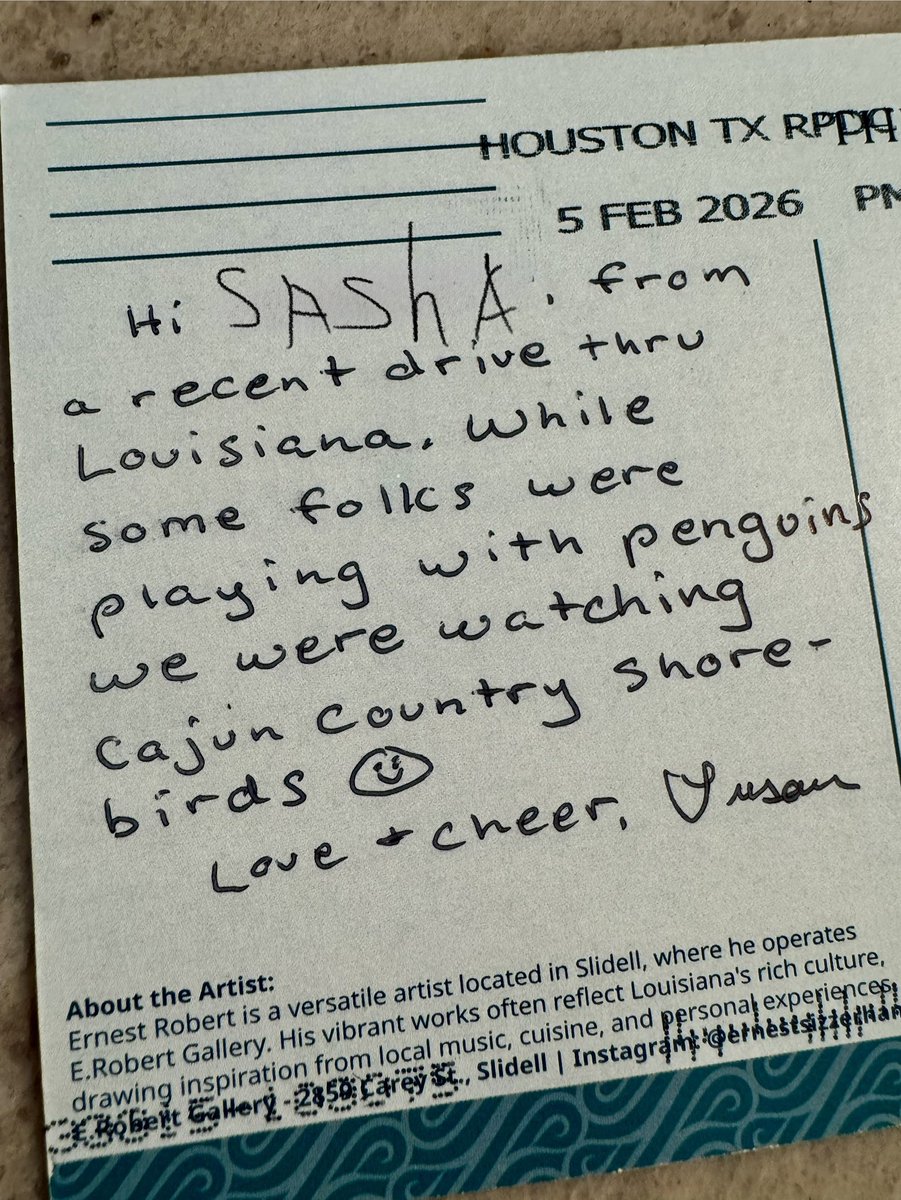 HOUSTON TX RPDC
5 FEB 2026 PM
Hi SAShA, from
a recent drive thru
Louisiana. While
some folks were
playing with penguins
we were watching
Cajun Country Shore-
birds
Love + cheer,
About the Artist:
Ernest Robert is a versatile artist located in Slidell, where he operates
E.Robert Gallery. His vibrant works often reflect Louisiana's rich culture,
drawing inspiration from local music, cuisine, and personal experiences.
E Robert Gallery - 2159 Carey St., Slidell | Instagram: